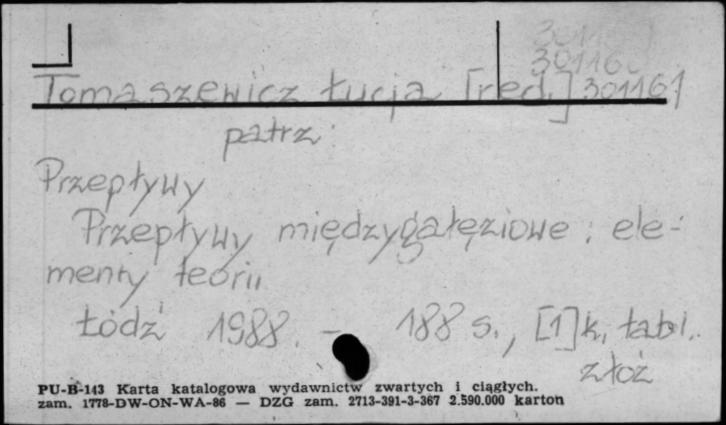 301160
301160
Tomaszewicz Łucja [red.] 301161
patrz:
Przepływy
Przepływy międzygałęziowe : ele-
menty teorii
Łódź 1988. - 188 s., [1] k. tabl.
złoż
PU-B-143 Karta katalogowa wydawnictw zwartych i ciągłych.
zam. 1778-DW-ON-WA-86 — DZG zam. 2713-391-3-367 2.590.000 karton